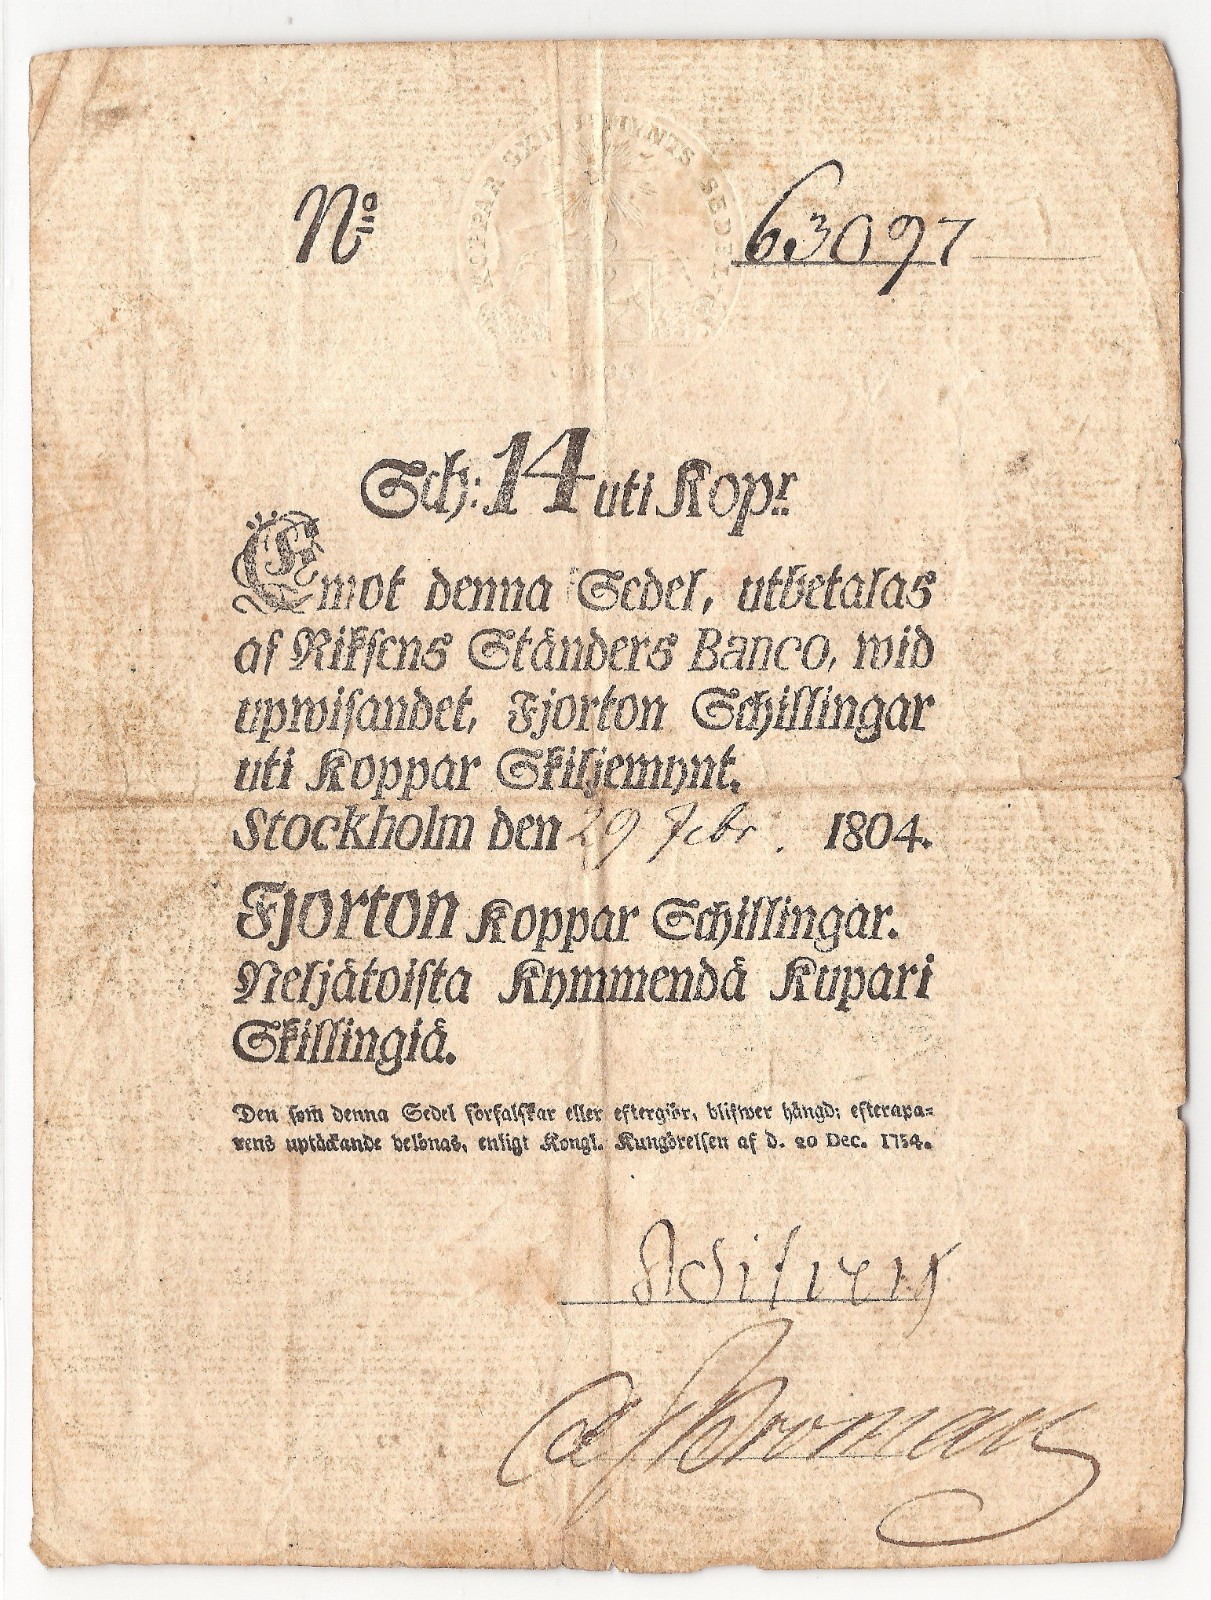 KOPPAR SKILJEMYNTS SEDEL
No 63097
Sch: 14 uti Kopr.
Emot denna Sedel, utbetalas
af Riksens Ständers Banco, wid
upwisandet, Fjorton Schillingar
uti Koppar Skiljemynt.
Stockholm den 29 Febr. 1804.
Fjorton Koppar Schillingar.
Neljätoista Kymmendä Kupari
Skillingiä.
Den som denna Sedel förfalskar eller eftergiör, blifwer hängd; efterapa=
rens uptäckande belönas, enligt Kongl. Kungörelsen af d. 20 Dec. 1754.
Broman